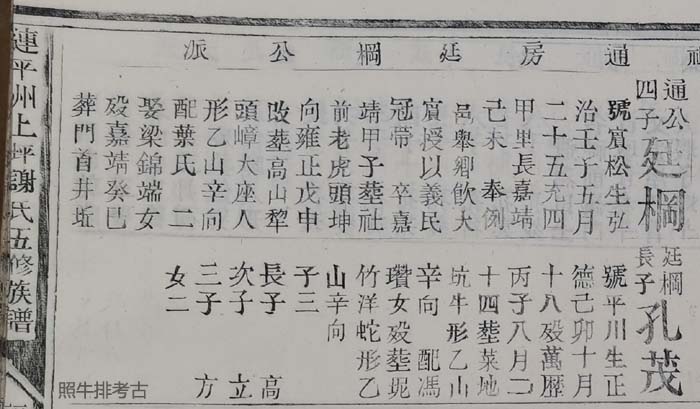 通房廷棡公派
通公四子 廷棡
號賔松生弘
治壬子五月
二十五充四
甲里長嘉靖
己未 奉例
邑舉鄉飲大
賔授以義民
冠帶 卒嘉
靖甲子塟社
前老虎頭坤
向雍正戊申
改塟高山犂
頭嶂大座人
形乙山辛向
配葉氏 二
娶梁錦端女
歿嘉靖癸巳
葬門首井坵
廷棡長子 孔茂
號平川生正
德己卯十月
十八歿萬歷
丙子八月二
十四塟菜地
坑牛形乙山
辛向 配馮
瓚女歿塟坭
竹洋蛇形乙
山辛向
子三
長子 高
次子 立
三子 方
女二
漣平州上坪謝氏五修族譜
照牛排考古